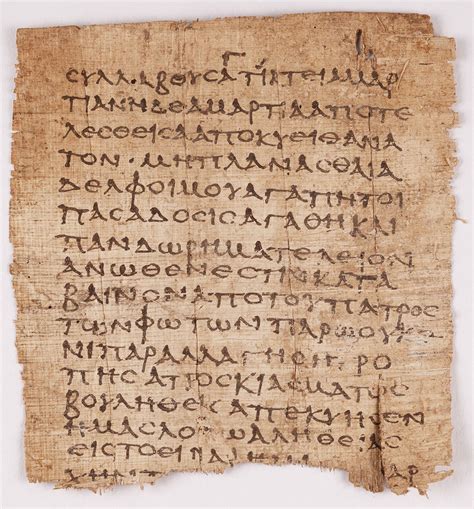 ϹΥΛΛΑΒΟΥϹΑΤΙΚΤΕΙΑΜΑΡ
ΤΙΑΝΗΔΕΑΜΑΡΤΙΑΑΠΟΤΕ
ΛΕϹΘΕΙϹΑΑΠΟΚΥΕΙΘΑΝΑ
ΤΟΝ·ΜΗΠΛΑΝΑϹΘΑΙΑ
ΔΕΛΦΟΙΜΟΥΑΓΑΠΗΤΟΙ
ΠΑϹΑΔΟϹΙϹΑΓΑΘΗΚΑΙ
ΠΑΝΔΩΡΗΜΑΤΕΛΕΙΟΝ
ΑΝΩΘΕΝΕϹΤΙΝΚΑΤΑ
ΒΑΙΝΟΝΑΠΟΤΟΥΠΑΤΡΟϹ
ΤΩΝΦΩΤΩΝΠΑΡΩΟΥΚΕ
ΝΙΠΑΡΑΛΛΑΓΗΗΡΟ
ΠΗϹΑΠΟϹΚΙΑϹΜΑΤΟϹ
ΒΟΥΛΗΘΕΙϹΑΠΕΚΥΗϹΕΝ
ΗΜΑϹΛΟΓΩΑΛΗΘΕΙΑϹ
ΕΙϹΤΟΕΙΝΑΙΗΜ